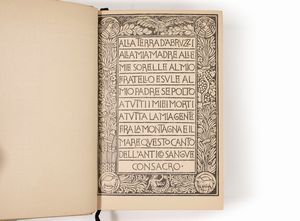 ALLA TERRA D'ABRUZZI
ALLA MIA MADRE ALLE
MIE SORELLE AL MIO
FRATELLO ESULE AL
MIO PADRE SEPOLTO
A TUTTI I MIEI MORTI
A TUTTA LA MIA GENTE
FRA LA MONTAGNA E IL
MARE QUESTO CANTO
DELL'ANTICO SANGUE
CONSACRO